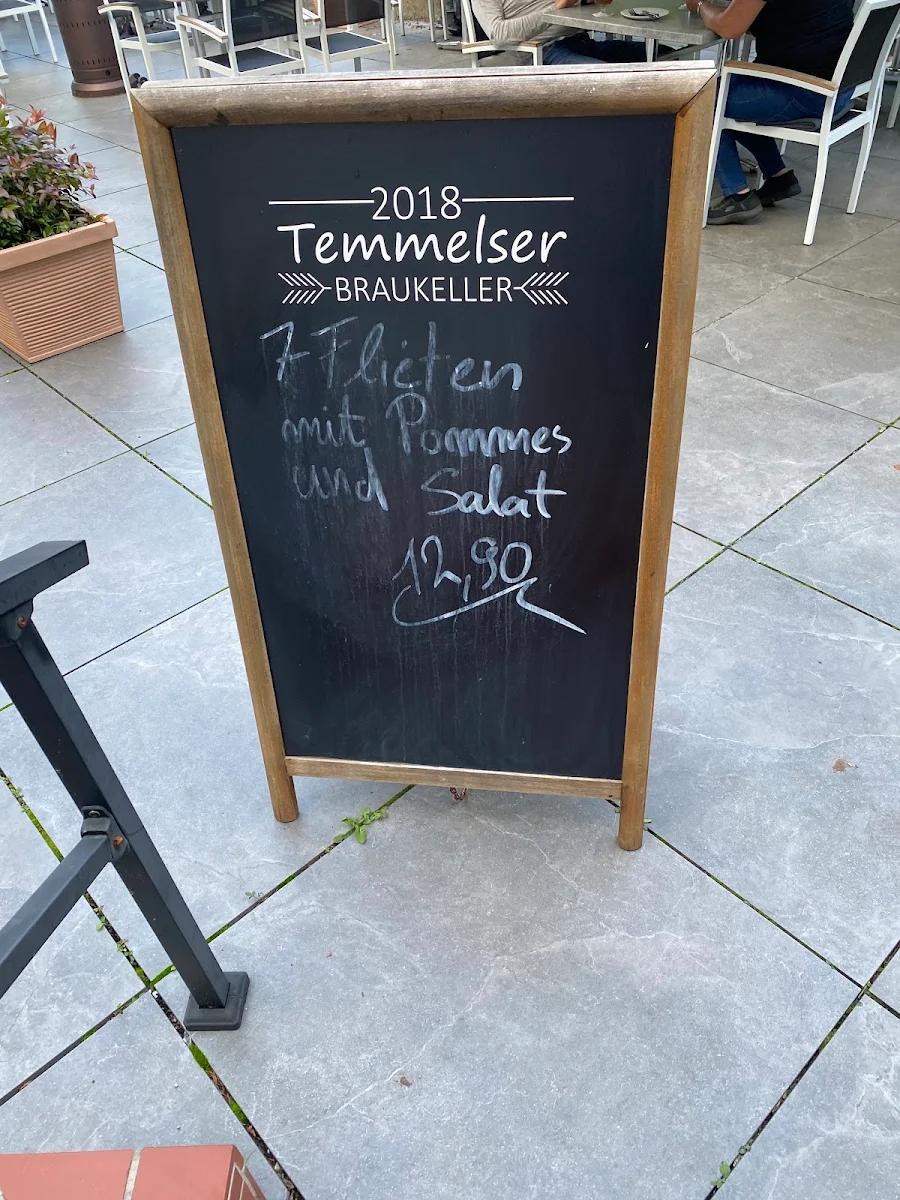 2018
Temmelser
BRAUKELLER
7 Flieten
mit Pommes
und Salat
12,90